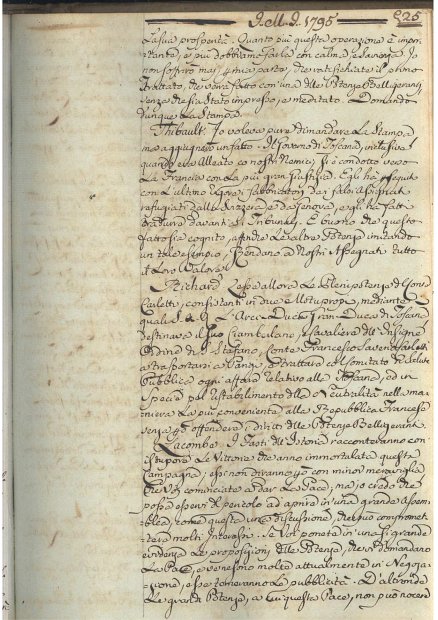 I.M.I. 1795 225
la sua prosperità. Quanto più questa operazione è impor-
tante, e più dobbiamo farla con calma, e saviezza. Io
non soffrirò mai, che si ratifichi il primo
Trattato, che verrà fatto con una delle Potenze Belligeranti
senza che sia stato impresso, e meditato. Domando
dunque la stampa.
Thibault. Io voleva pure dimandare la stampa,
ma aggiungervi un fatto. Il Governo di Toscana, inclusive
quando era Alleato co nostri Nemici, si è condotto verso
la Francia con la più gran giustizia. Egli ha
con l'ultimo rigore i fabbricatori dei falsi Assignati
rifugiati dalla Svizzera e da Genova, e gli ha fatti
tradurre davanti ai Tribunali. È buono che questo
fatto sia cognito, affinché le altre Potenze imitando
un tale esempio, rendano a Nostri Assegnati tutto
il loro valore.
Richard lesse allora le Plenipotenze del Conte
Carletti, consistenti in due Motu propri, mediante i
quali S.A.R. l'Arci-Duca Gran-Duca di Toscana
destinava il suo Ciambellano, e Cavaliere dell'Insigne
Ordine di S. Stefano, Conte Francesco Saverio Carletti
a portarsi a Parigi, e trattare col Comitato di Salute
Pubblica ogni affare relativo alla Toscana, ed in
specie pel ristabilimento della Neutralità nella ma-
niera la più conveniente alla Repubblica Francese
senza offendere i diritti delle Potenze Belligeranti.
Lacombe. I Fasti dell'Istoria racconteranno con
istupore le Vittorie che anno immortalato questa
Campagna; essi non diranno con minor meraviglia
che Voi cominciate a dar la Pace; ma io credo che
possa esservi pericolo ad aprire in una grande Assem-
blea, come questa una discussione, che può compromet-
tere molti interessi. Se Voi ponete in una sì grande
evidenza le proposizioni delle Potenze, che vi domandano
la Pace, e ve ne sono molte attualmente in Negozia-
zione, esse temeranno la pubblicità. D'altronde
le grandi Potenze, a cui questa Pace, non può nocere